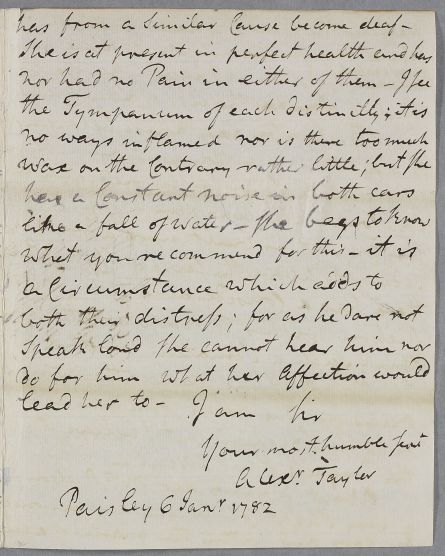 has from a Similar Cause become deaf -
She is at present in perfect health and has
nor had no Pain in either of them - I see
the Tympanum of each distinctly; it is
no ways inflamed nor is there too much
wax on the Contrary rather little; but she
has a Constant noise in both ears
like a fall of water - she begs to know
what you recommend for this - it is
a Circumstance which adds to
both their distress; for as he Dare not
Speak loud she cannot hear him nor
do for him what her Affection would
lead her to - I am Sir
Your most humble servt
Alexr. Taylor
Paisley 6 Janr 1782